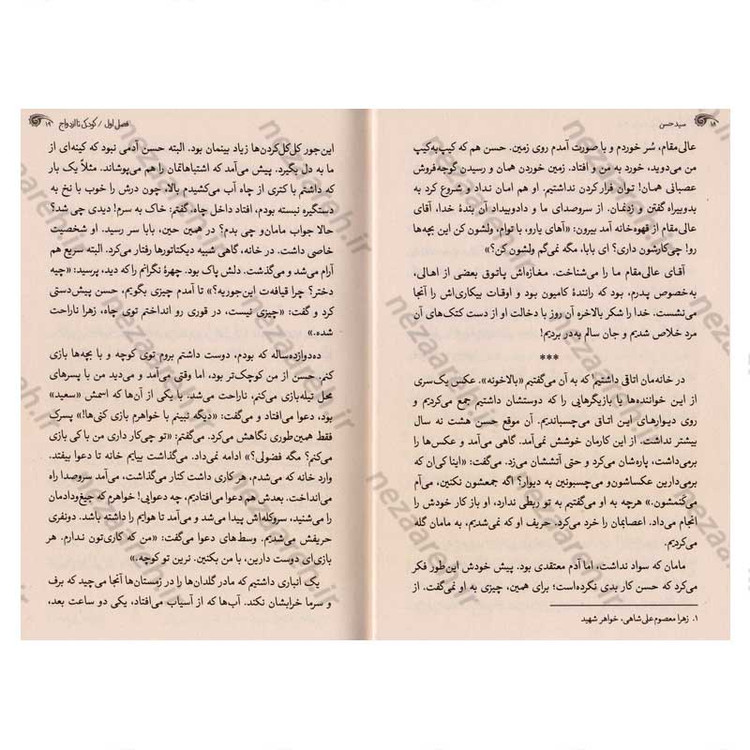 ۱۸ سیدحسن
عالی‌مقام، سُر خوردم و با صورت آمدم روی زمین. حسن هم که کیپ‌به‌کیپ
من می‌دوید، خورد به من و افتاد. زمین خوردن همان و رسیدن گوجه‌فروش
عصبانی همان! توان فرار کردن نداشتیم. او هم امان نداد و شروع کرد به
بدوبیراه گفتن و زدنمان. از سروصدای ما و دادوبیداد آن بندهٔ خدا، آقای
عالی‌مقام از قهوه‌خانه آمد بیرون: «آهای یارو، با توام، ولشون کن این بچه‌ها
رو! چی‌کارشون داری؟ ای بابا، مگه نمی‌گم ولشون کن؟»
آقـای عالی‌مقام ما را می‌شناخت. مغازه‌اش پاتوق بعضی از اهالی،
به‌خصوص پدرم، بود که رانندهٔ کامیون بود و اوقات بیکاری‌اش را آنجا
می‌نشست. خدا را شکر بالاخره آن روز با دخالت او از دست کتک‌های آن
مرد خلاص شدیم و جان سالم به‌در بردیم!
***
در خانه‌مان اتاقی داشتیم¹ که به آن می‌گفتیم «بالاخونه». عکس یک‌سری
از این خواننده‌ها یا بازیگرهایی را که دوستشان داشتیم جمع می‌کردیم و
روی دیوارهای این اتاق می‌چسباندیم. آن موقع حسن هشت نه سال
بیشتر نداشت. از این کارمان خوشش نمی‌آمد. گاهی می‌آمد و عکس‌ها را
برمی‌داشت، پاره‌شان می‌کرد و حتی آتششان می‌زد. می‌گفت: «اینا کی‌ان که
برمی‌دارین عکساشون‌و می‌چسبونین به دیوار؟ اگه جمعشون نکنین، می‌آم
می‌کَنمشون.» هرچه به او می‌گفتیم به تو ربطی ندارد، او باز کار خودش را
انجام می‌داد. اعصابمان را خرد می‌کرد. حریف او که نمی‌شدیم، به مامان گله
می‌کردیم.
مامان که سواد نداشت، اما آدم معتقدی بود. پیش خودش این‌طور فکر
می‌کرد که حسن کار بدی نکرده‌است؛ برای همین، چیزی به او نمی‌گفت. از
۱. زهرا معصوم‌علی‌شاهی، خواهر شهید
فصل اول / کودکی تا ازدواج ۱۹
این‌جور کل‌کل‌کردن‌ها زیاد بینمان بود. البته حسن آدمی نبود که کینه‌ای از
ما به دل بگیرد. پیش می‌آمد که اشتباهاتمان را هم می‌پوشاند. مثلاً یک بار
که داشتم با کتری از چاه آب می‌کشیدم بالا، چون درش را خوب با نخ به
دستگیره نبسته بودم، افتاد داخل چاه. گفتم: خاک به سرم! دیدی چی شد؟
حالا جواب مامان‌و چی بدم؟ در همین حین، بابا سر رسید. او شخصیت
خاصی داشت. در خانه، گاهی شبیه دیکتاتورها رفتار می‌کرد. البته سریع هم
آرام می‌شد و می‌گذشت. دلش پاک بود. چهرهٔ نگرانم را که دید، پرسید: «چیه
دختر؟ چرا قیافه‌ت این‌جوریه؟» تا آمدم چیزی بگویم، حسن پیش‌دستی
کرد و گفت: «چیزی نیست، در قوری رو انداختم توی چاه، زهرا ناراحت
شده.»
ده‌دوازده‌ساله که بودم، دوست داشتم بروم توی کوچه و با بچه‌ها بازی
کنم. حسن از من کوچک‌تر بود، اما وقتی می‌آمد و می‌دید من با پسرهای
محل تیله‌بازی می‌کنم، ناراحت می‌شد. با یکی از آن‌ها که اسمش «سعید»
بود، دعوا می‌افتاد و می‌گفت: «دیگه نبینم با خواهرم بازی کنی‌ها!» پسرک
فقط همین‌طوری نگاهش می‌کرد. می‌گفتم: «تو چی‌کار داری من با کی بازی
می‌کنم؟ مگه فضولی؟» ادامه نمی‌داد. می‌گذاشت بیایم خانه تا دعوا بیفتد.
وارد خانه که می‌شدم، هر کاری داشت کنار می‌گذاشت، می‌آمد سروصدا راه
می‌انداخت. بعدش هم دعوا می‌افتادیم، چه دعوایی! خواهرم که جیغ‌ودادمان
را می‌شنید، سروکله‌اش پیدا می‌شد و می‌آمد تا هوایم را داشته باشد. دونفری
حریفش می‌شدیم. وسط‌های دعوا می‌گفت: «من که کاری‌تون ندارم. هر
بازی‌ای دوست دارین، با من بکنین. نرین تو کوچه.»
یک انباری داشتیم که مادر گلدان‌ها را در زمستان‌ها آنجا می‌چید که برف
و سرما خرابشان نکند. آب‌ها که از آسیاب می‌افتاد، یکی دو ساعت بعد،
nezaareh.ir